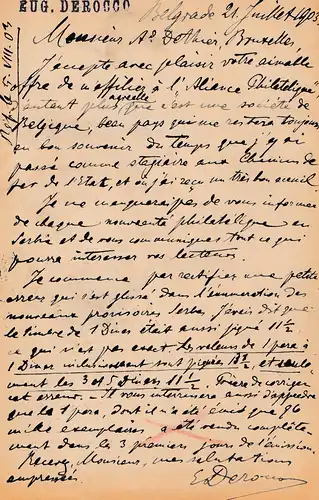 EUG. DEROCCO
Belgrade 21. Juillet 1903
Monsieur Ad. Dothier, Bruxelles,
J'accepte avec plaisir votre aimable
offre de m'affilier à l'"Aliance Philatélique"
d'autant plus, qu'elle c'est une société de
Belgique, beau pays qui me restera toujours
en bon souvenir du temps que j'y ai
passé comme stagiaire aux Chemins de
fer de l'Etat, et où j'ai reçu un très bon accueil.
Je ne manquerai pas de vous informer
de chaque nouveauté philatélique en
Serbie et de vous communiquer tout ce qui
pourra intéresser vos lecteurs.
Je commence par rectifier une petite
erreur qui s'est glissé dans l'énumération des
nouveaux provisoires Serbes. J'avais dit que
le timbre de 1 Dinar était aussi piqué 11½
ce qui n'est pas exact. Les valeurs de 1 para à
1 Dinar sont piquées 13½ et seule-
ment les 3 et 5 Dinars 11½. Prière de corriger
cet erreur. – Il vous intéressera aussi d'apprendre
que la 1 para, dont il n'a été émis que 96
mille exemplaires a été vendu complète-
ment dans les 3 premiers jours de l'émission.
Recevez, Monsieur, mes salutations
empressées.
E. Derocco